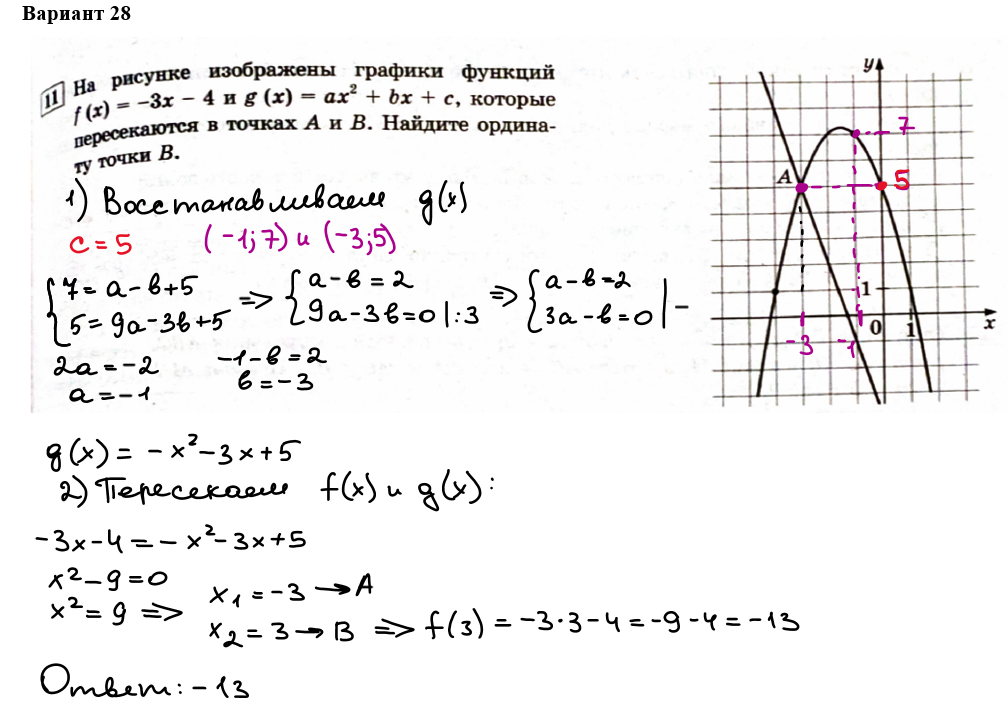 Вариант 28
11 На рисунке изображены графики функций
f (x) = −3x − 4 и g (x) = ax² + bx + c, которые
пересекаются в точках A и B. Найдите ордина-
ту точки B.
1) Восстанавливаем g(x)
c = 5 (-1; 7) и (-3; 5)
{7 = a - b + 5 => {a - b = 2 => {a - b = 2 | -
{5 = 9a - 3b + 5 {9a - 3b = 0 | :3 {3a - b = 0
2a = -2 -1 - b = 2
a = -1 b = -3
y
7
A
5
1
0 1 x
-3 -1
g(x) = - x² - 3x + 5
2) Пересекаем f(x) и g(x):
-3x - 4 = - x² - 3x + 5
x² - 9 = 0
x² = 9 => x₁ = -3 → A
x₂ = 3 → B => f(3) = -3·3 - 4 = -9 - 4 = -13
Ответ: - 13